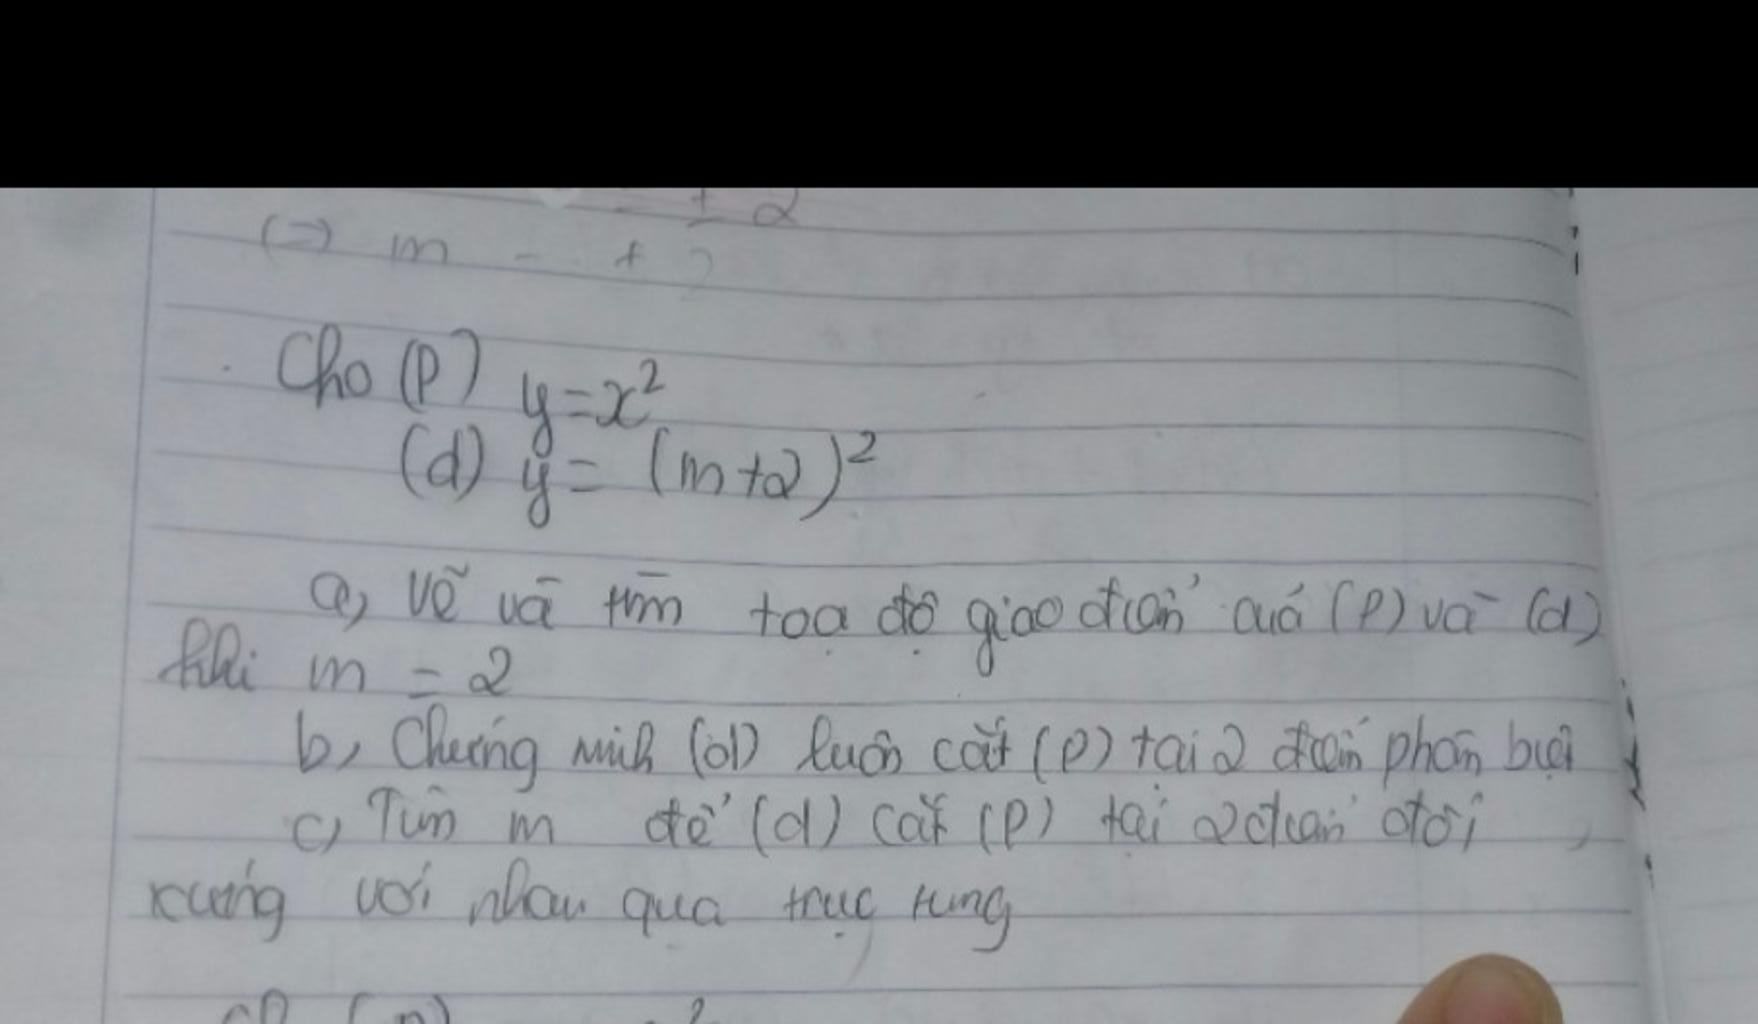 ± 2
(=) m - + 2
Cho (P) y=x²
(d) y = (m+2)²
a, Vẽ và tìm toạ độ giao điểm của (P) và (d)
khi m = 2
b, Chứng minh (d) luôn cắt (P) tại 2 điểm phân biệt
c, Tìm m để (d) cắt (P) tại 2 điểm đối
xứng với nhau qua trục tung